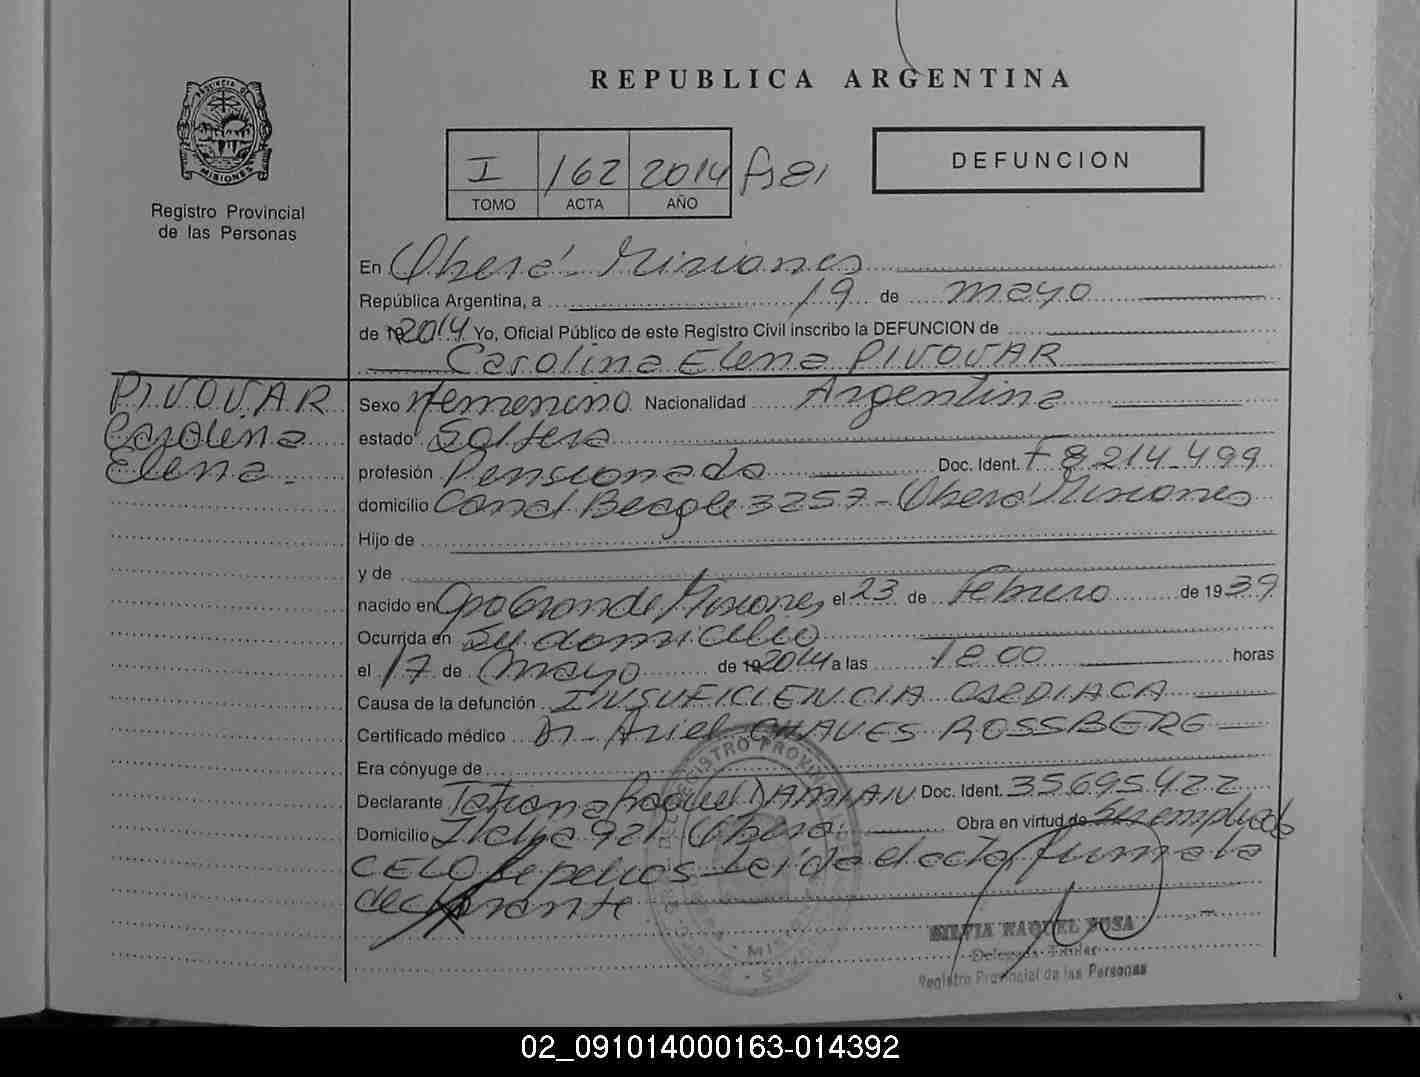 REPUBLICA ARGENTINA
PROVINCIA DE
MISIONES
Registro Provincial
de las Personas
I 162 2014 fs 81
TOMO ACTA AÑO
DEFUNCION
En Oberá - Misiones
República Argentina, a 19 de mayo
de 192014 Yo, Oficial Público de este Registro Civil inscribo la DEFUNCION de
Carolina Elena PIVOVAR
PIVOVAR
Carolina
Elena.
Sexo femenino Nacionalidad Argentina
estado Soltera
profesión Pensionada Doc. Ident. F 8.214.499
domicilio Canal Beagle 3257 - Oberá Misiones
Hijo de
y de
nacido en Cpo Grande Misiones el 23 de Febrero de 1939
Ocurrida en Su domicilio
el 17 de mayo de 192014 a las 18 00 horas
Causa de la defunción INSUFICIENCIA CARDIACA
Certificado médico Dr. Ariel CHAVES ROSSBERG
Era cónyuge de
Declarante Tatiana Raquel DAMIAN Doc. Ident. 35695422
Domicilio 921 Oberá. Obra en virtud de Ser empleada
CELO Sepelios Leída el acta firma la
declarante
SILVIA RAQUEL SOSA
Delegada Titular
Registro Provincial de las Personas
02_091014000163-014392